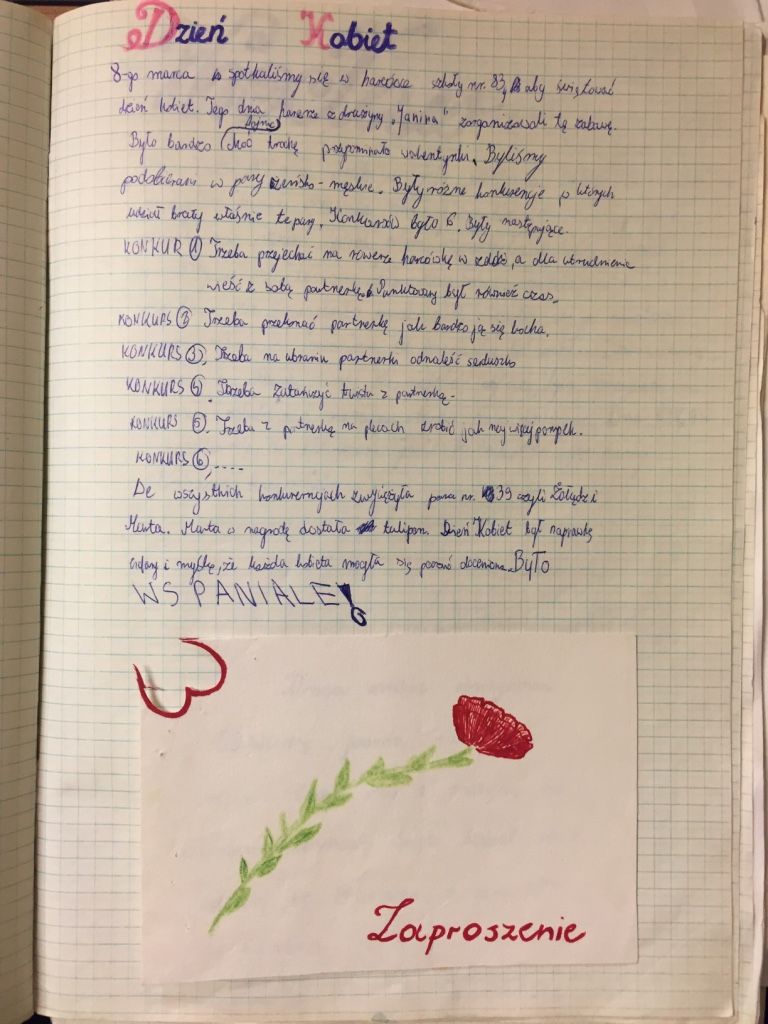 Dzień Kobiet
8-go marca spotkaliśmy się w harcówce szkoły nr. 83, aby świętować
dzień kobiet. Tego dnia harcerze z drużyny „Janina" zorganizowali tę zabawę.
fajnie
Było bardzo choć trochę przypominało walentynki. Byliśmy
podobierani w pary żeńsko-męskie. Były różne konkurencje w których
udział brały właśnie te pary. Konkursów było 6. Były następujące.
KONKUR 1 Trzeba przejechać na rowerze harcówkę w, a dla utrudnienia
wieść z sobą partnerkę. Punktowany był również czas.
KONKURS 2 Trzeba przekonać partnerkę jak bardzo ją się kocha.
KONKURS 3, Trzeba na ubraniu partnerki odnaleść serduszko
KONKURS 4. Trzeba zatańczyć twista z partnerką.
KONKURS 5. Trzeba z partnerką na plecach zrobić jak najwięcej pompek.
KONKURS 6, ....
We wszystkich konkurencjach zwyciężyła para nr. 39 czyli Żołądź i
Marta. Marta w nagrodę dostała tulipan. Dzień Kobiet był naprawdę
udany i myślę, że każda kobieta mogła się poczuć doceniona. Było
WSPANIALE!
Zaproszenie